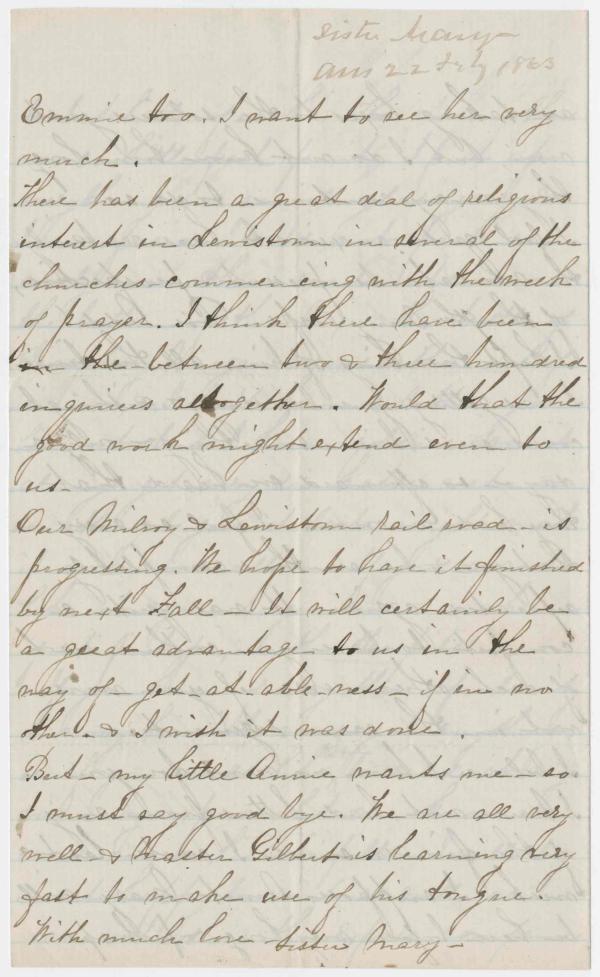 Sister Mary
ans 22 Feby 1863
Emmie too. I want to see her very
much.
There has been a great deal of religious
interest in Lewistown in several of the
churches commencing with the week
of prayer. I think there have been
in the between two & three hundred
inquirers altogether. Would that the
good work might extend even to
us-
Our Milroy & Lewistown rail road - is
progressing. We hope to have it finished
by next Fall - It will certainly be
a great advantage to us in the
way of - get-at-able-ness - if in no
other. & I wish it was done.
But - my little Annie wants me - so
I must say good bye. We are all very
well - & Master Gilbert is learning very
fast to make use of his tongue.
With much love Sister Mary-